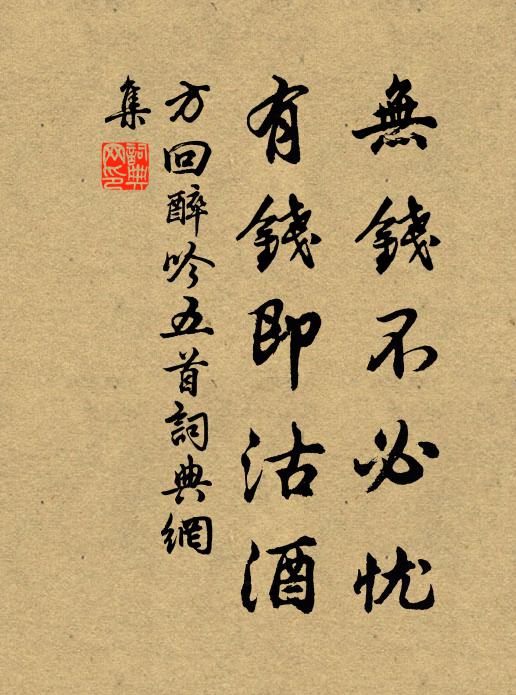 無錢不必忧
有錢即沽酒
方回醉吟五首詞典網
集
詞典網印